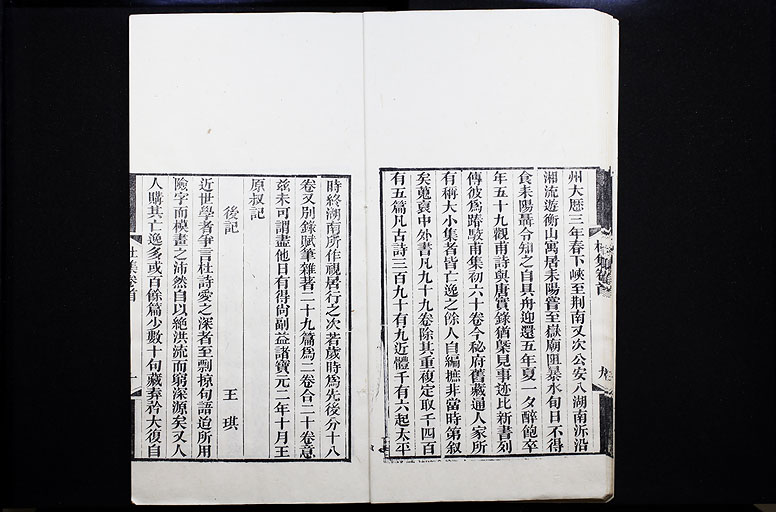 州大厯三年春下峽至荆南又次公安入湖南泝沿
湘流遊衡山寓居耒陽嘗至嶽廟阻暴水旬日不得
食耒陽聶令知之自具舟迎還五年夏一夕醉飽卒
年五十九觀甫詩與唐實錄猶槩見事迹比新書列
傳彼爲踳駮甫集初六十卷今秘府舊藏通人家所
有稱大小集者皆亡逸之餘人自編摭非當時第叙
矣蒐裒中外書凡九十九卷除其重複定取千四百
有五篇凡古詩三百九十有九近體千有六起太平
杜集卷首
九
時終湖南所作視居行之次若歲時爲先後分十八
卷又別錄賦筆雜著二十九篇爲二卷合二十卷意
茲未可謂盡他日有得尚副益諸寶元二年十月王
原叔記
後記
王琪
近世學者爭言杜詩愛之深者至剽掠句語迨所用
險字而模畫之沛然自以絶洪流而窮深源矣又人
人購其亡逸多或百餘篇少數十句藏弆矜大復自
杜集卷首